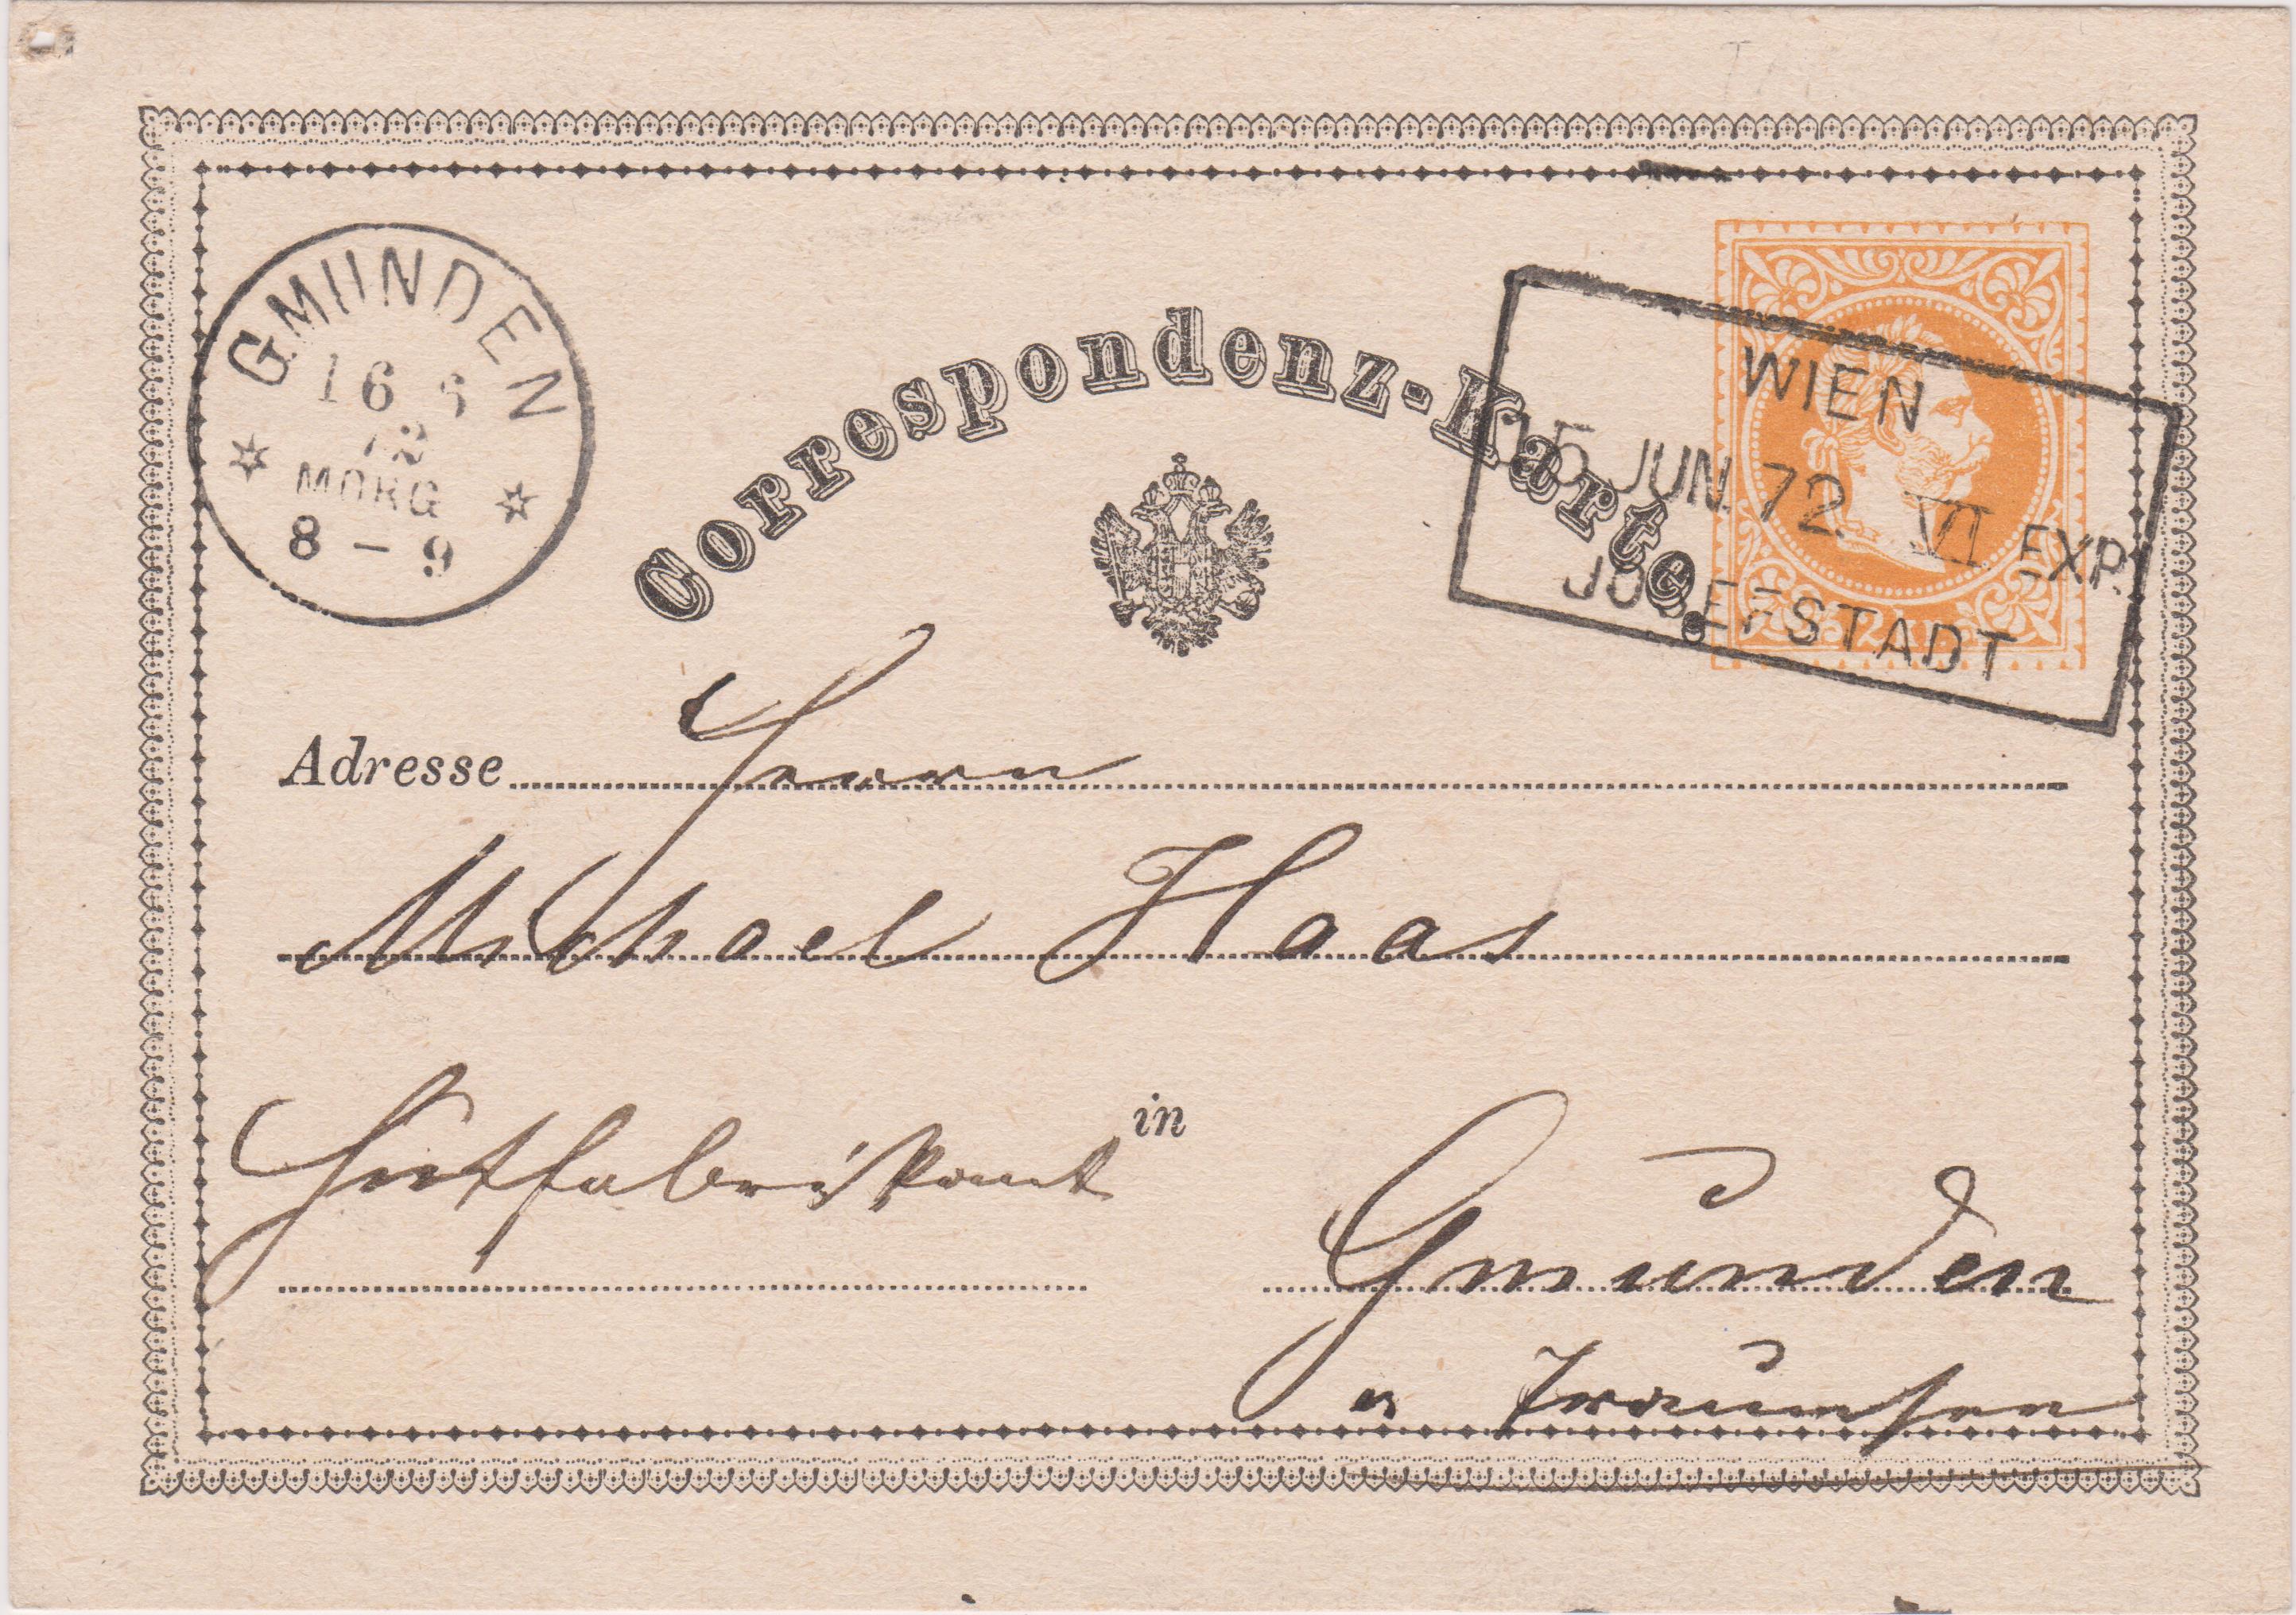 GMUNDEN
16 6
72
MORG
8 - 9
Correspondenz-Karte.
WIEN
15 JUN. 72. VI EXP.
JOSEFSTADT
2 kr.
Adresse Herrn
Michael Haas
Hutfabrikant in Gmunden
a Traunsee